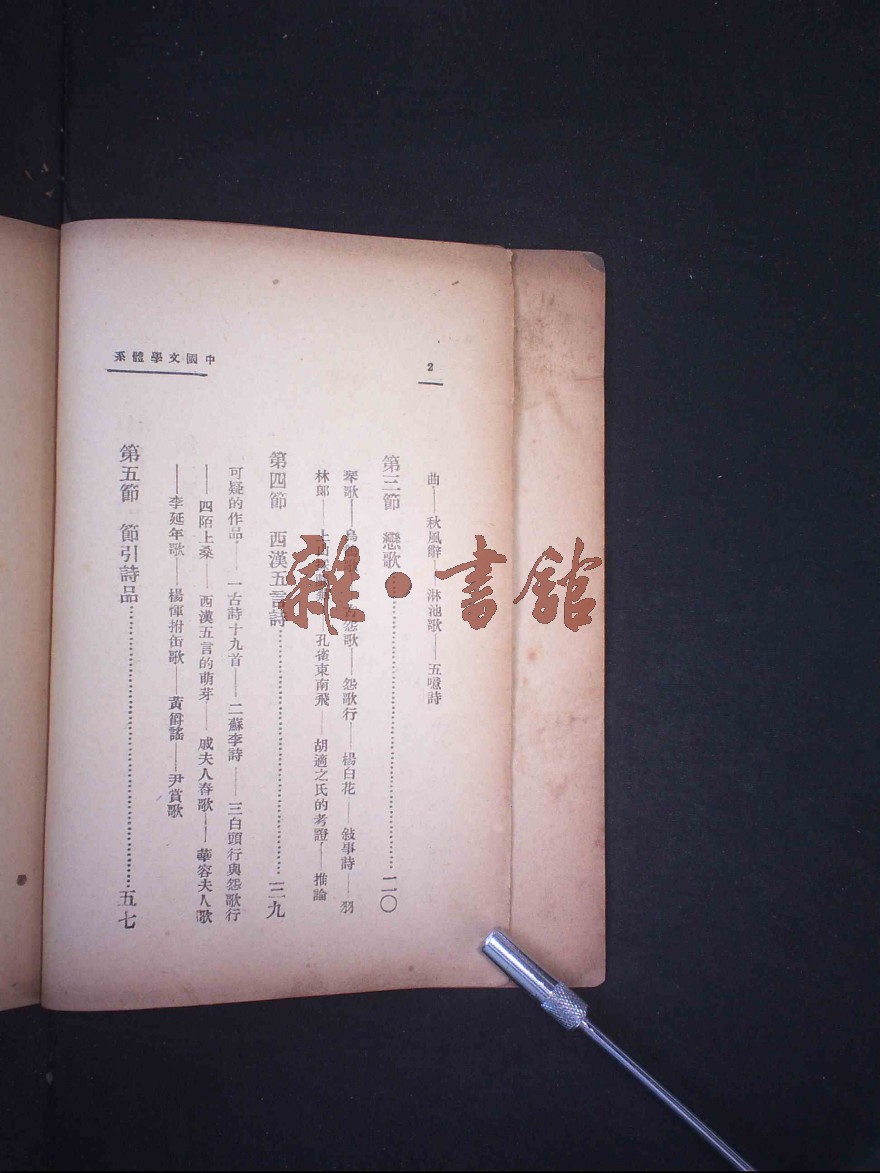 中國文學體系
2
曲——秋風辭——淋池歌——五噫詩
第三節 戀歌 二〇
琴歌—— 怨歌——怨歌行——楊白花——敍事詩——羽
林郎—— 上山 孔雀東南飛——胡適之氏的考證——推論
第四節 西漢五言詩 三九
可疑的作品——一古詩十九首——二蘇李詩——三白頭行與怨歌行
——四陌上桑——西漢五言的萌芽——戚夫人舂歌——華容夫人歌
——李延年歌——楊惲拊缶歌——黃爵謠——尹賞歌
第五節 節引詩品 五七
雜·書舘